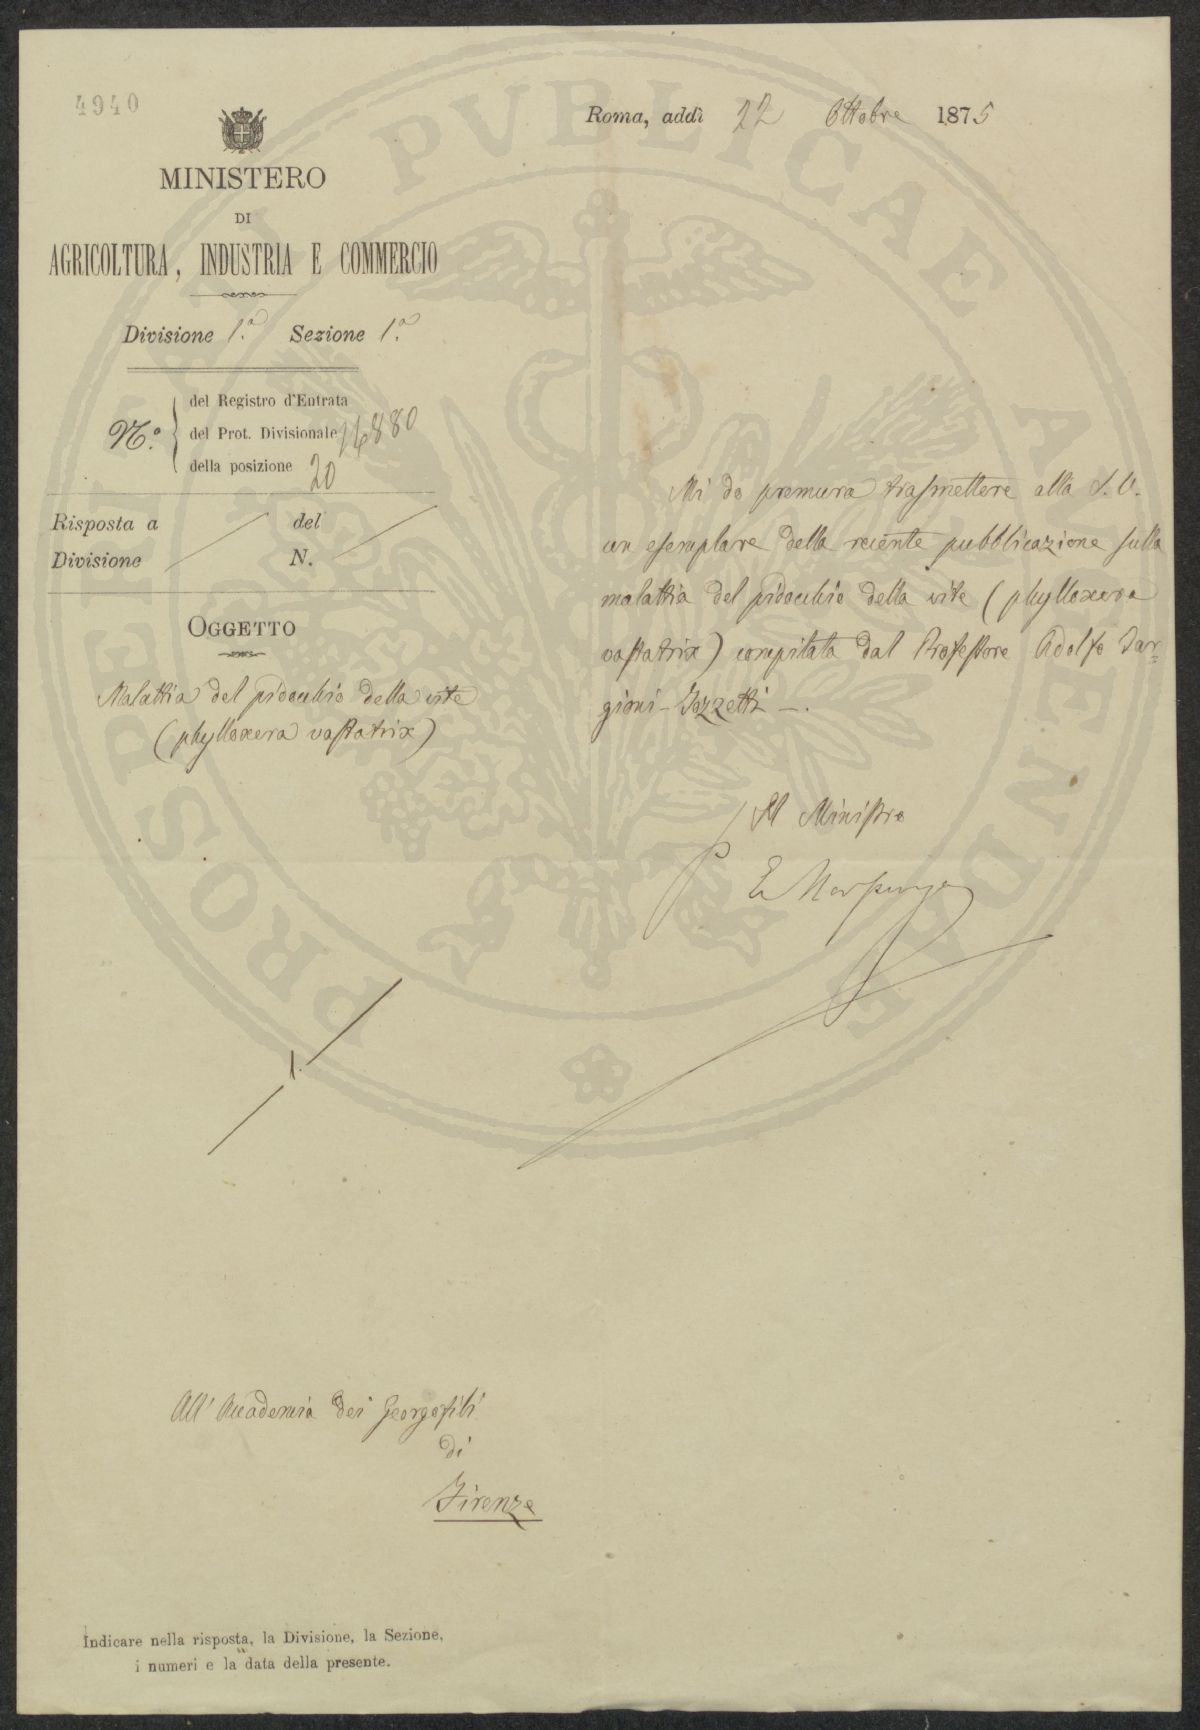 4940
Roma, addì 22 Ottobre 1875
MINISTERO
DI
AGRICOLTURA, INDUSTRIA E COMMERCIO
Divisione 1.a Sezione 1.a
N.o
del Registro d'Entrata
del Prot. Divisionale 14880
della posizione 20
Risposta a del
Divisione N.
OGGETTO
Malattia del pidocchio della vite
(phylloxera vastatrix)
Mi do premura trasmettere alla S. V.
un esemplare della recente pubblicazione sulla
malattia del pidocchio della vite (phylloxera
vastatrix) compilata dal Professore Adolfo Tar=
gioni-Tozzetti —.
Il Ministro
E Morpurgo
1.
All'Accademia dei Georgofili
di
Firenze
Indicare nella risposta, la Divisione, la Sezione,
i numeri e la data della presente.
PROSPERITATI PVBLICAE AVGENDAE